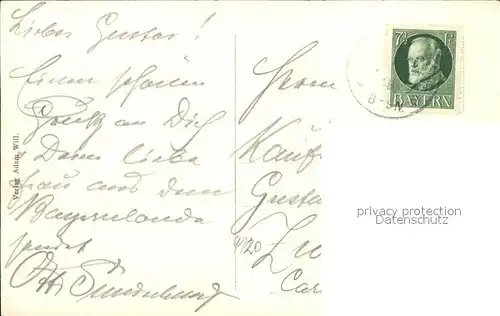 Lieber Gustav!
Einen schönen
Gruß an Dich
Deine liebe
Frau aus dem
Bayernlande
sendet
Otto
Verlag Adam Will.
Herrn
Kauf
Gusta
Zu
Car
4120
7½ Pf
BAYERN
B-9N.
privacy protection
Datenschutz